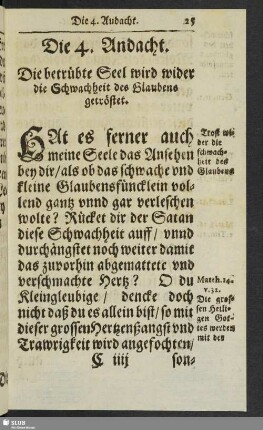 Die 4. Andacht. 25
Die 4. Andacht.
Die betrübte Seel wird wider
die Schwachheit des Glaubens
getröstet.
HAt es ferner auch
meine Seele das Ansehen
bey dir/ als ob das schwache vnd
kleine Glaubensfüncklein vol-
lend gantz vnnd gar verleschen
wolte? Rücket dir der Satan
diese Schwachheit auff/ vnnd
durchängstet noch weiter damit
das zuvorhin abgemattete vnd
verschmachte Hertz? O du
Kleingleubige/ dencke doch
nicht daß du es allein bist/ so mit
dieser grossen Hertzenßangst vnd
Trawrigkeit wird angefochten/
C iiij son-
Trost wi-
der die
schwach-
heit des
Glaubens
Matth. 14.
v. 31.
Die gros-
sen Heili-
gen Got-
tes werden
mit den
SLUB